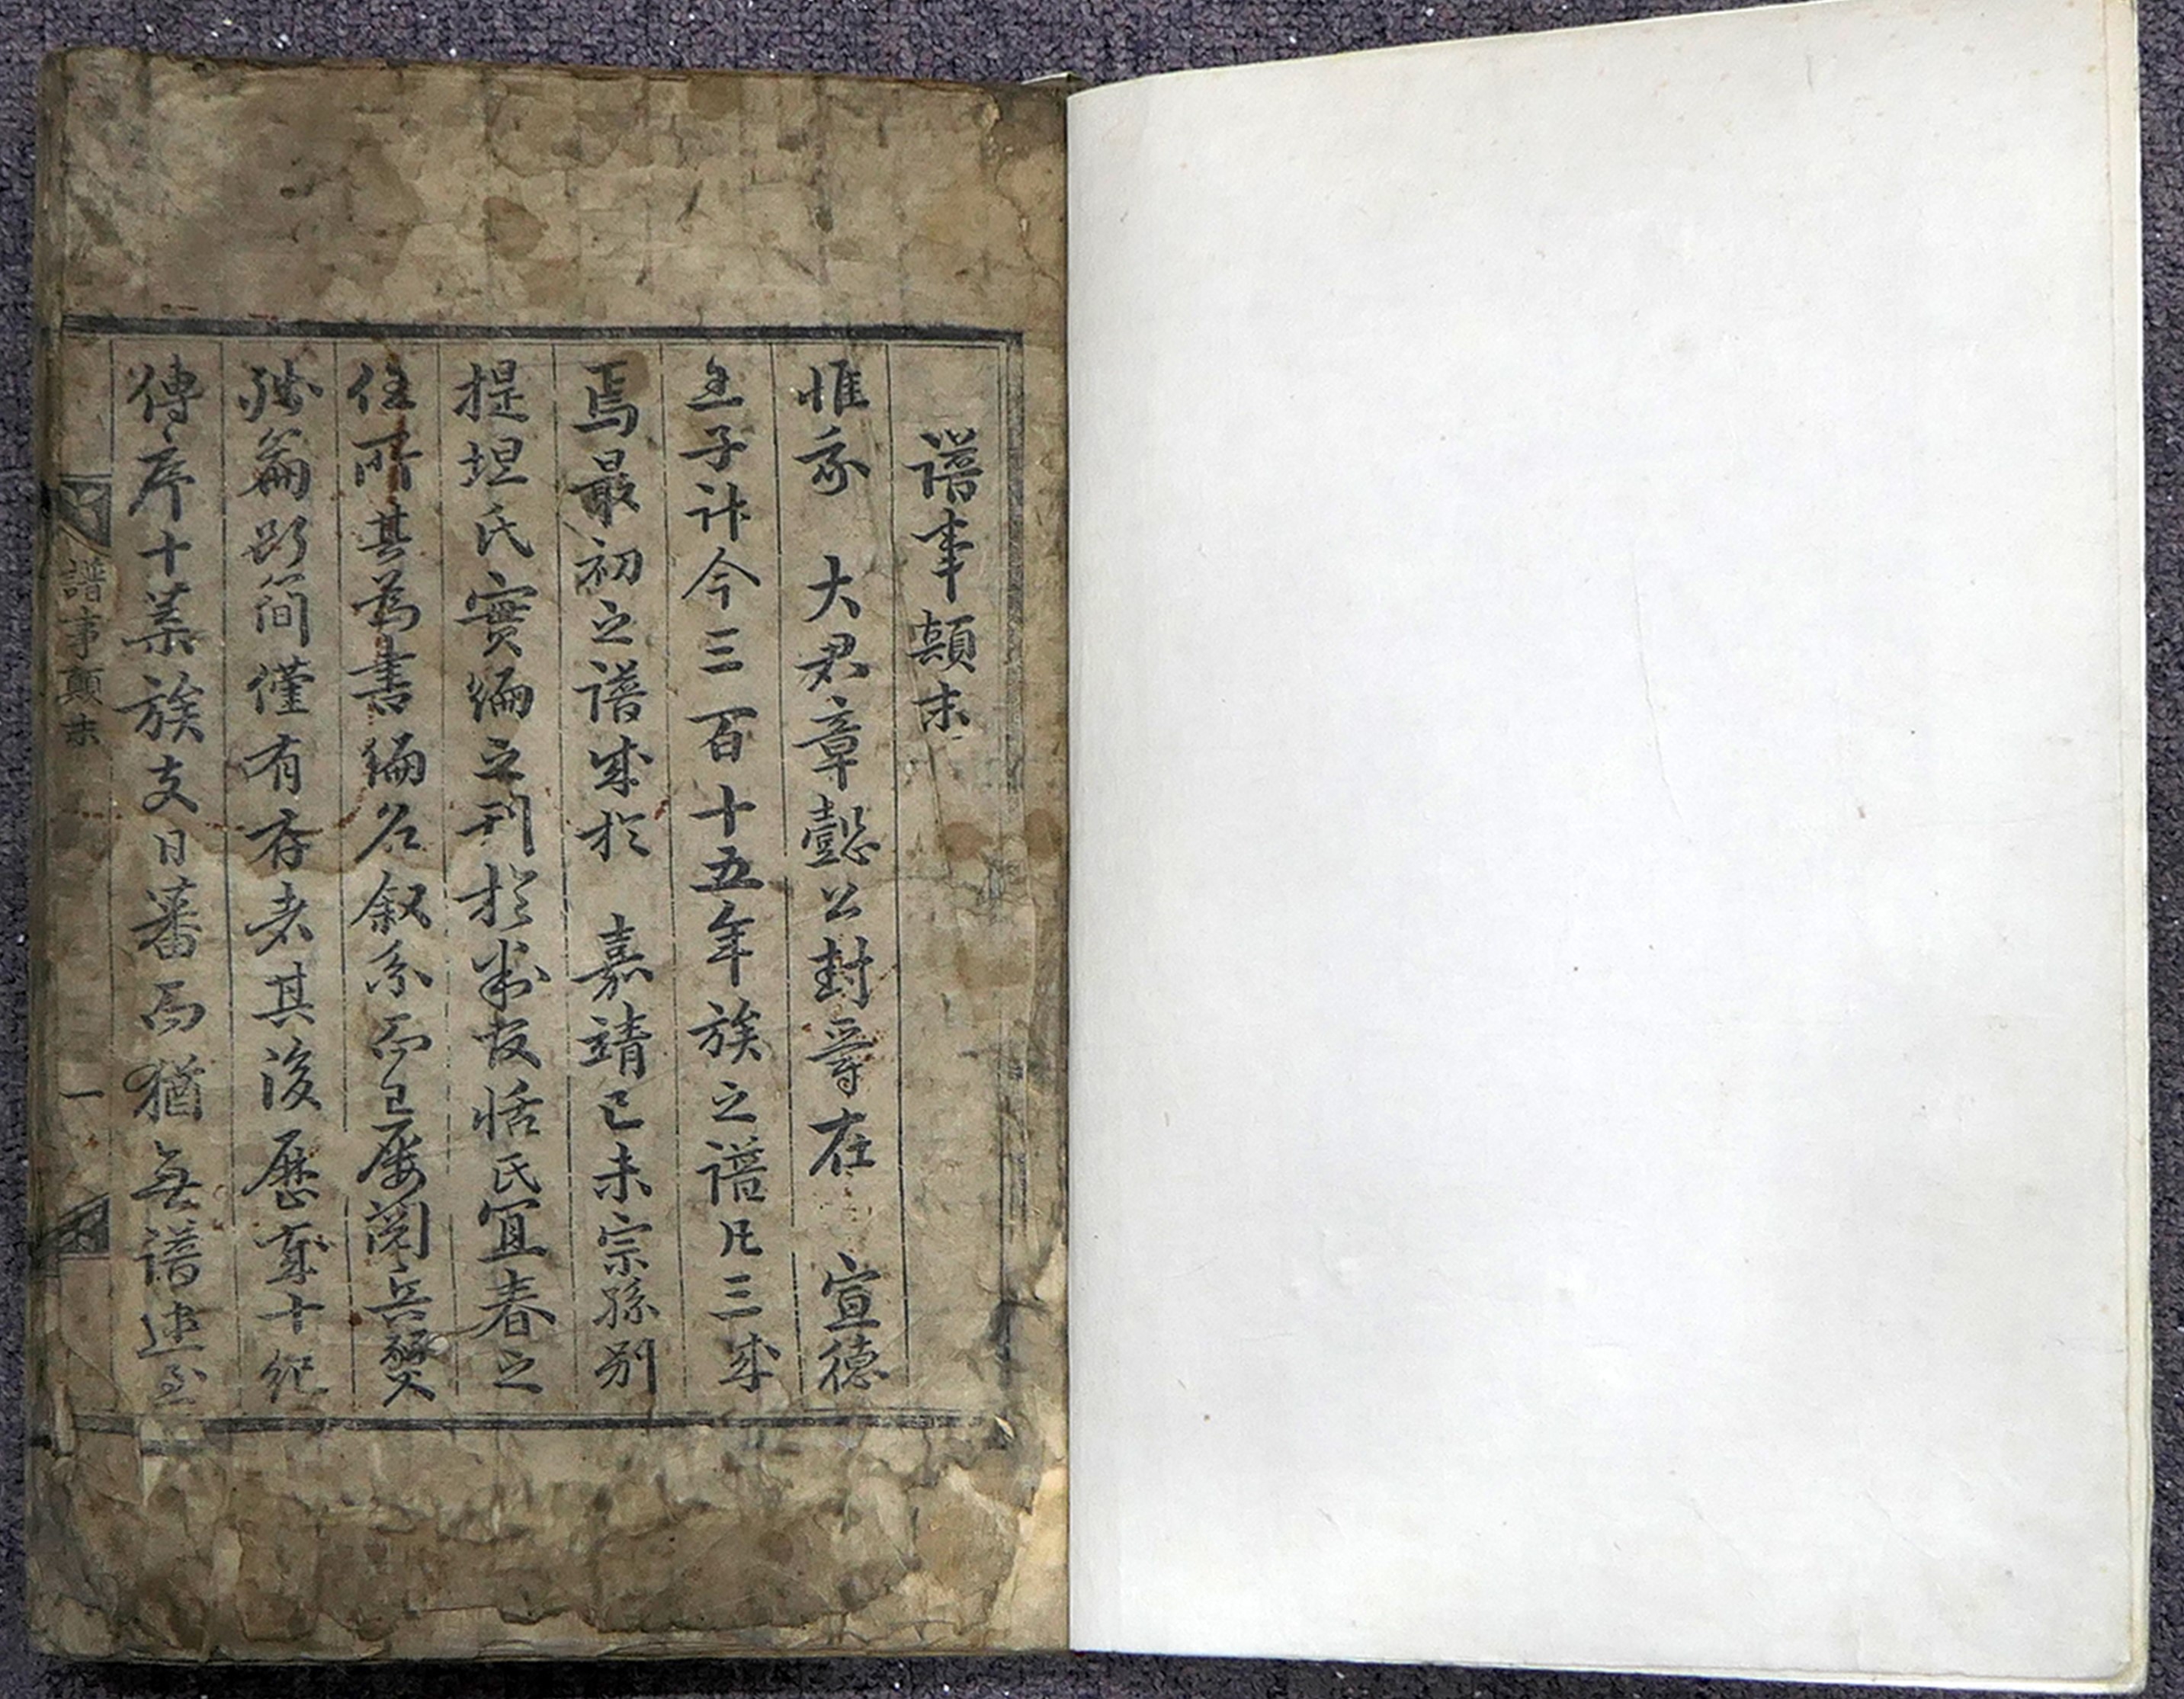 譜事顛末
惟我 大君章懿公封爵在 宣德
壬子計今三百十五年族之譜凡三成
焉最初之譜成於 嘉靖己未宗孫別
提坦氏實編之刊於判校恬氏宜春之
任所其為書編名叙系而已屢閱兵燹
殘篇斷簡僅有存者其後歷幾十紀
傳序十葉族支日蕃而猶無譜逮至
譜事顛末 一